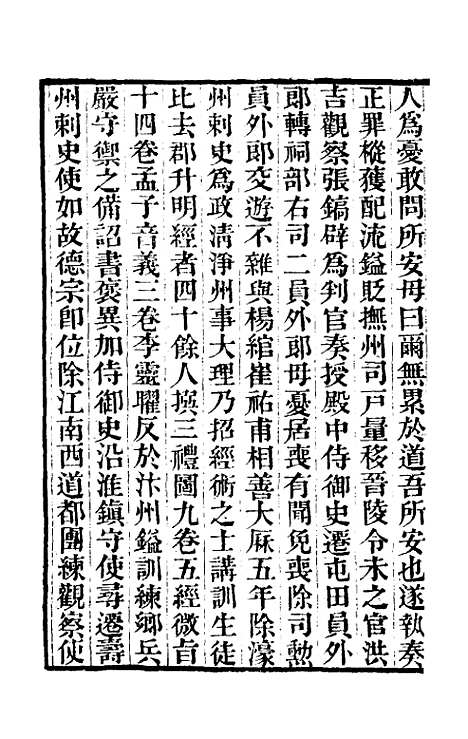 人爲憂敢問所安毋曰爾無累於道吾所安也遂執奏
正罪樅獲配流鎰貶撫州司戸量移晉陵令未之官洪
吉觀察張鎬辟爲判官奏授殿中侍御史遷屯田員外
郎轉祠部右司二員外郎毋憂居喪有聞免喪除司勲
員外郎交遊不雜與楊綰崔祐甫相善大厤五年除濠
州刺史爲政清淨州事大理乃招經術之士講訓生徒
比去郡升明經者四十餘人撰三禮圖九卷五經微㫖
十四卷孟子音義三卷李靈曜反於汴州鎰訓練鄉兵
嚴守禦之備詔書褒異加侍御史沿淮鎮守使尋遷壽
州刺史使如故德宗卽位除江南西道都團練觀察使